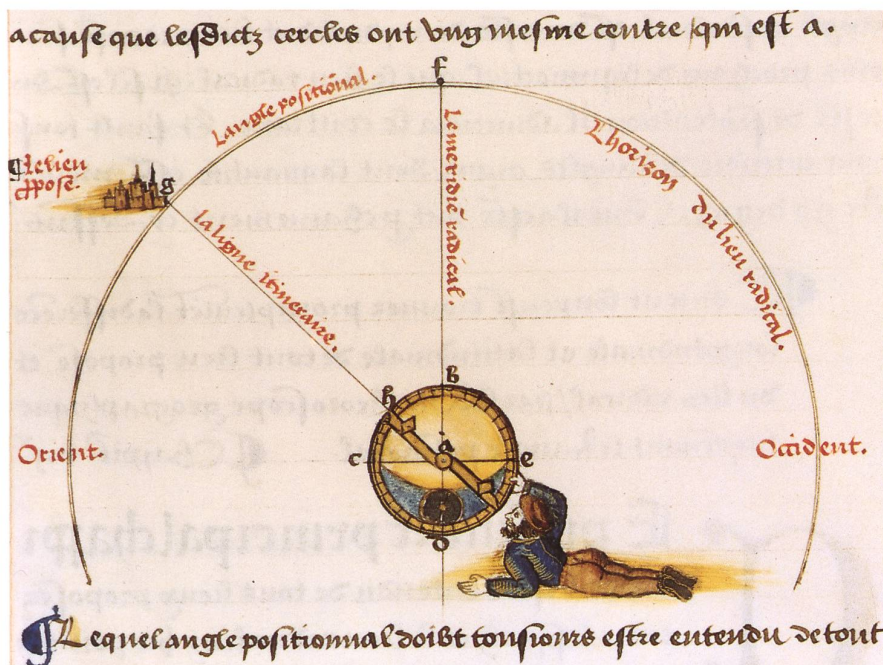 acause que lesdictz cercles ont vng mesme centre / qui est a.
f
Langle positional.
Le meridiē radical.
Lhorizon du lieu radical.
¶ Le lieu
ꝓpose.
g
la ligne itineraire.
b
h
Orient.
c
a
e
Occident.
d
¶ Lequel angle positionnal doibt tousiours estre entendu de tout